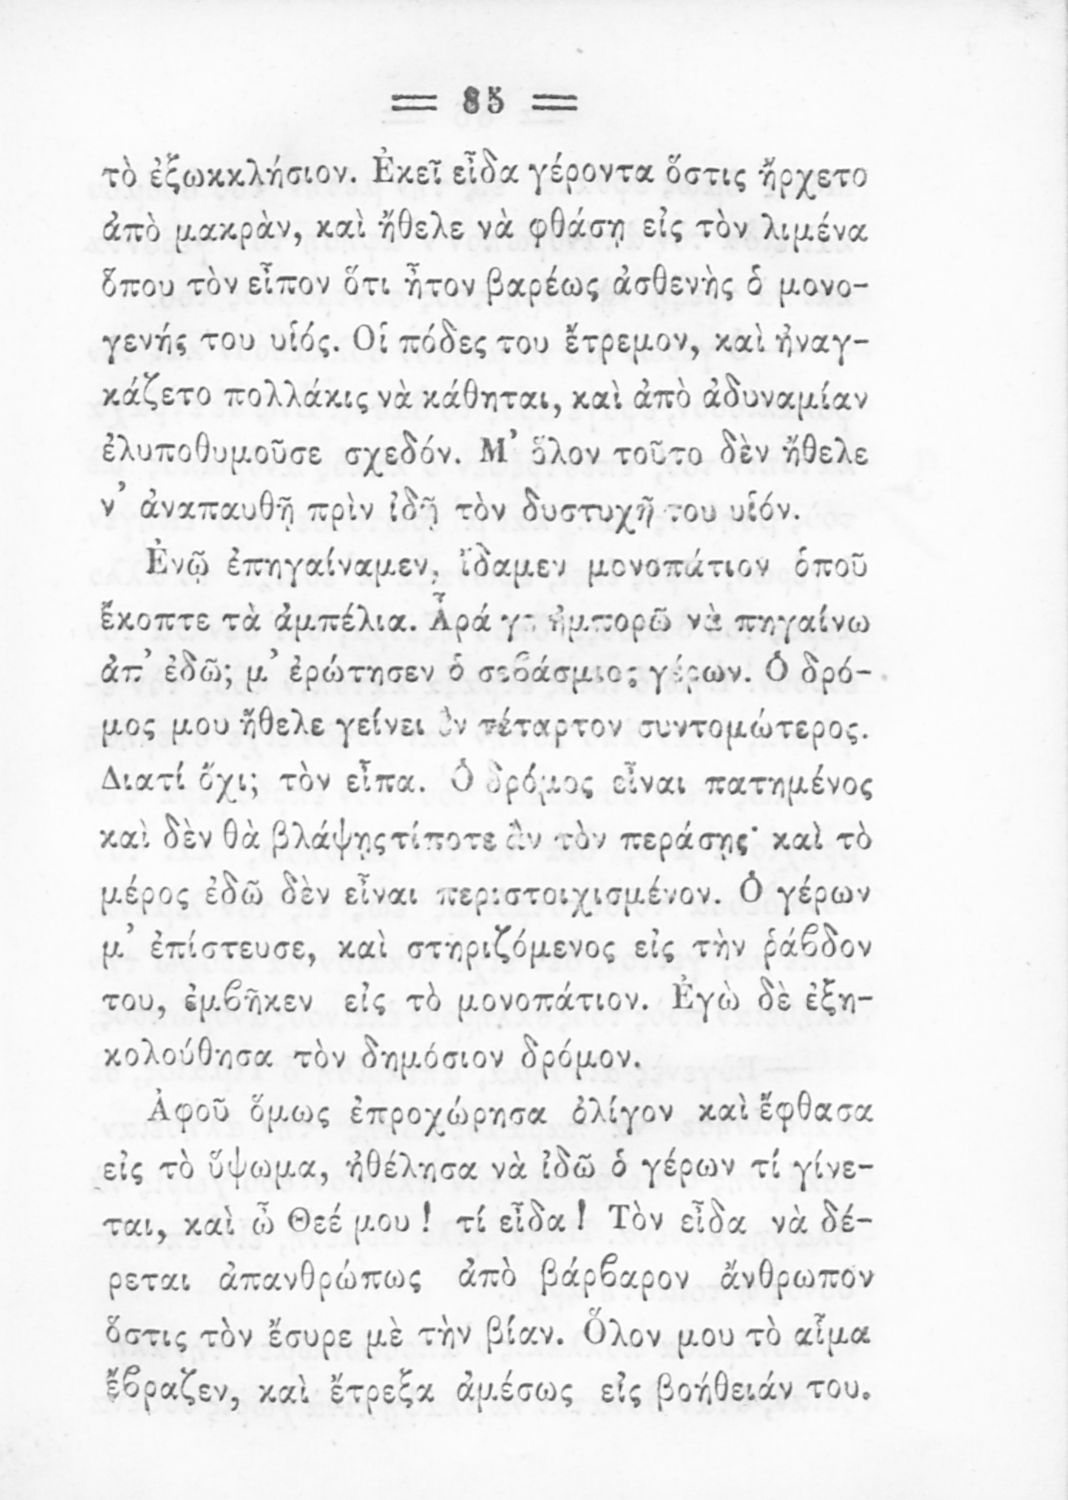 = 85 =
τὸ ἐξωκκλήσιον. Ἐκεῖ εἶδα γέροντα ὅστις ἤρχετο
ἀπὸ μακρὰν, καὶ ἤθελε νὰ φθάσῃ εἰς τὸν λιμένα
ὅπου τὸν εἶπον ὅτι ἦτον βαρέως ἀσθενὴς ὁ μονο-
γενής του υἱός. Οἱ πόδες του ἔτρεμον, καὶ ἠναγ-
κάζετο πολλάκις νὰ κάθηται, καὶ ἀπὸ ἀδυναμίαν
ἐλυποθυμοῦσε σχεδόν. Μ’ ὅλον τοῦτο δὲν ἤθελε
ν’ ἀναπαυθῇ πρὶν ἰδῇ τὸν δυστυχῆ του υἱόν.
Ἐνῷ ἐπηγαίναμεν, ἴδαμεν μονοπάτιον ὁποῦ
ἔκοπτε τὰ ἀμπέλια. Ἆρά γε ἠμπορῶ νὰ πηγαίνω
ἀπ’ ἐδῶ; μ’ ἐρώτησεν ὁ σεβάσμιος γέρων. Ὁ δρό-
μος μου ἤθελε γείνει ἓν τέταρτον συντομώτερος.
Διατί ὄχι; τὸν εἶπα. Ὁ δρόμος εἶναι πατημένος
καὶ δὲν θὰ βλάψῃς τίποτε ἂν τὸν περάσῃς· καὶ τὸ
μέρος ἐδῶ δὲν εἶναι περιστοιχισμένον. Ὁ γέρων
μ’ ἐπίστευσε, καὶ στηριζόμενος εἰς τὴν ῥάϐδον
του, ἐμϐῆκεν εἰς τὸ μονοπάτιον. Ἐγὼ δὲ ἐξη-
κολούθησα τὸν δημόσιον δρόμον.
Ἀφοῦ ὅμως ἐπροχώρησα ὀλίγον καὶ ἔφθασα
εἰς τὸ ὕψωμα, ἠθέλησα νὰ ἰδῶ ὁ γέρων τί γίνε-
ται, καὶ ὦ Θεέ μου! τί εἶδα! Τὸν εἶδα νὰ δέ-
ρεται ἀπανθρώπως ἀπὸ βάρϐαρον ἄνθρωπον
ὅστις τὸν ἔσυρε μὲ τὴν βίαν. Ὅλον μου τὸ αἷμα
ἔϐραζεν, καὶ ἔτρεξα ἀμέσως εἰς βοήθειάν του.